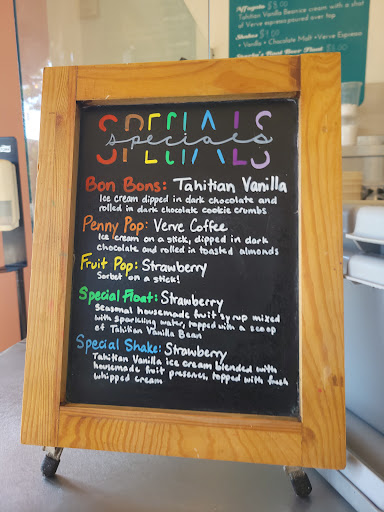 Affogato $5.00
Tahitian Vanilla Bean ice cream with a shot
of Verve espresso poured over top
Shakes
• Vanilla • Chocolate Malt • Verve Espresso
Root Beer Float
SPECIALS
specials
Bon Bons: Tahitian Vanilla
Ice cream dipped in dark chocolate and
rolled in dark chocolate cookie crumbs
Penny Pop: Verve Coffee
Ice cream on a stick, dipped in dark
chocolate and rolled in toasted almonds
Fruit Pop: Strawberry
Sorbet on a stick!
Special Float: Strawberry
Seasonal housemade fruit syrup mixed
with sparkling water, topped with a scoop
of Tahitian Vanilla Bean
Special Shake: Strawberry
Tahitian Vanilla ice cream blended with
housemade fruit preserves, topped with fresh
whipped cream